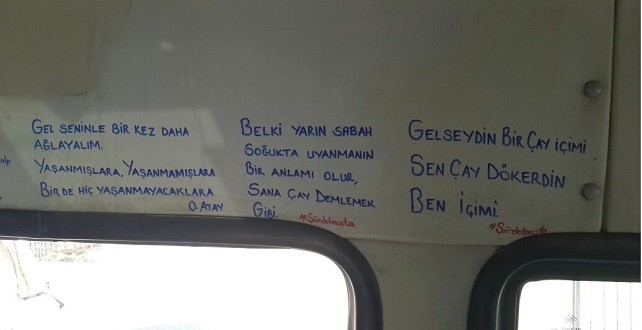 GEL SENİNLE BİR KEZ DAHA
AĞLAYALIM.
YAŞANMIŞLARA, YAŞANMAMIŞLARA
BİR DE HİÇ YAŞANMAYACAKLARA
O. ATAY
BELKİ YARIN SABAH
SOĞUKTA UYANMANIN
BİR ANLAMI OLUR,
SANA ÇAY DEMLEMEK
GİBİ.
GELSEYDİN BİR ÇAY İÇİMİ
SEN ÇAY DÖKERDİN
BEN İÇİMİ.